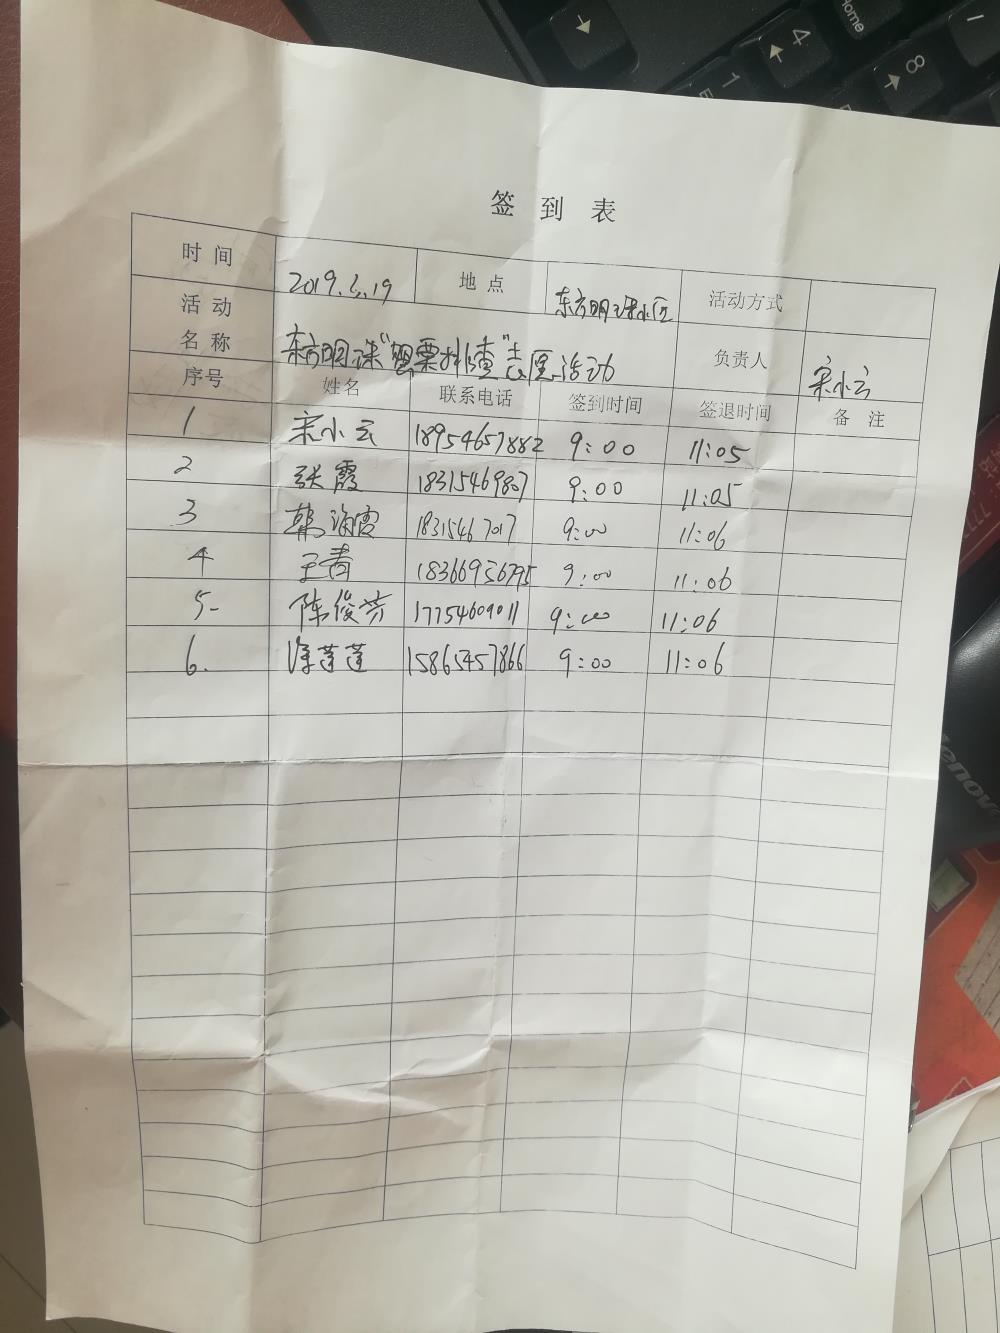 签到表
时间 2019.5.19 地点 东方明珠小区 活动方式
活动名称 东方明珠“罂粟排查”志愿活动 负责人 宋小云
序号 姓名 联系电话 签到时间 签退时间 备注
1 宋小云 18954657882 9:00 11:05
2 张霞 18315469807 9:00 11:05
3 韩海霞 18315467017 9:00 11:06
4 王青 18366956795 9:00 11:06
5- 陈俊芳 17754609011 9:00 11:06
6. 莲莲 15865457866 9:00 11:06
Home
4
8
1
lenovo